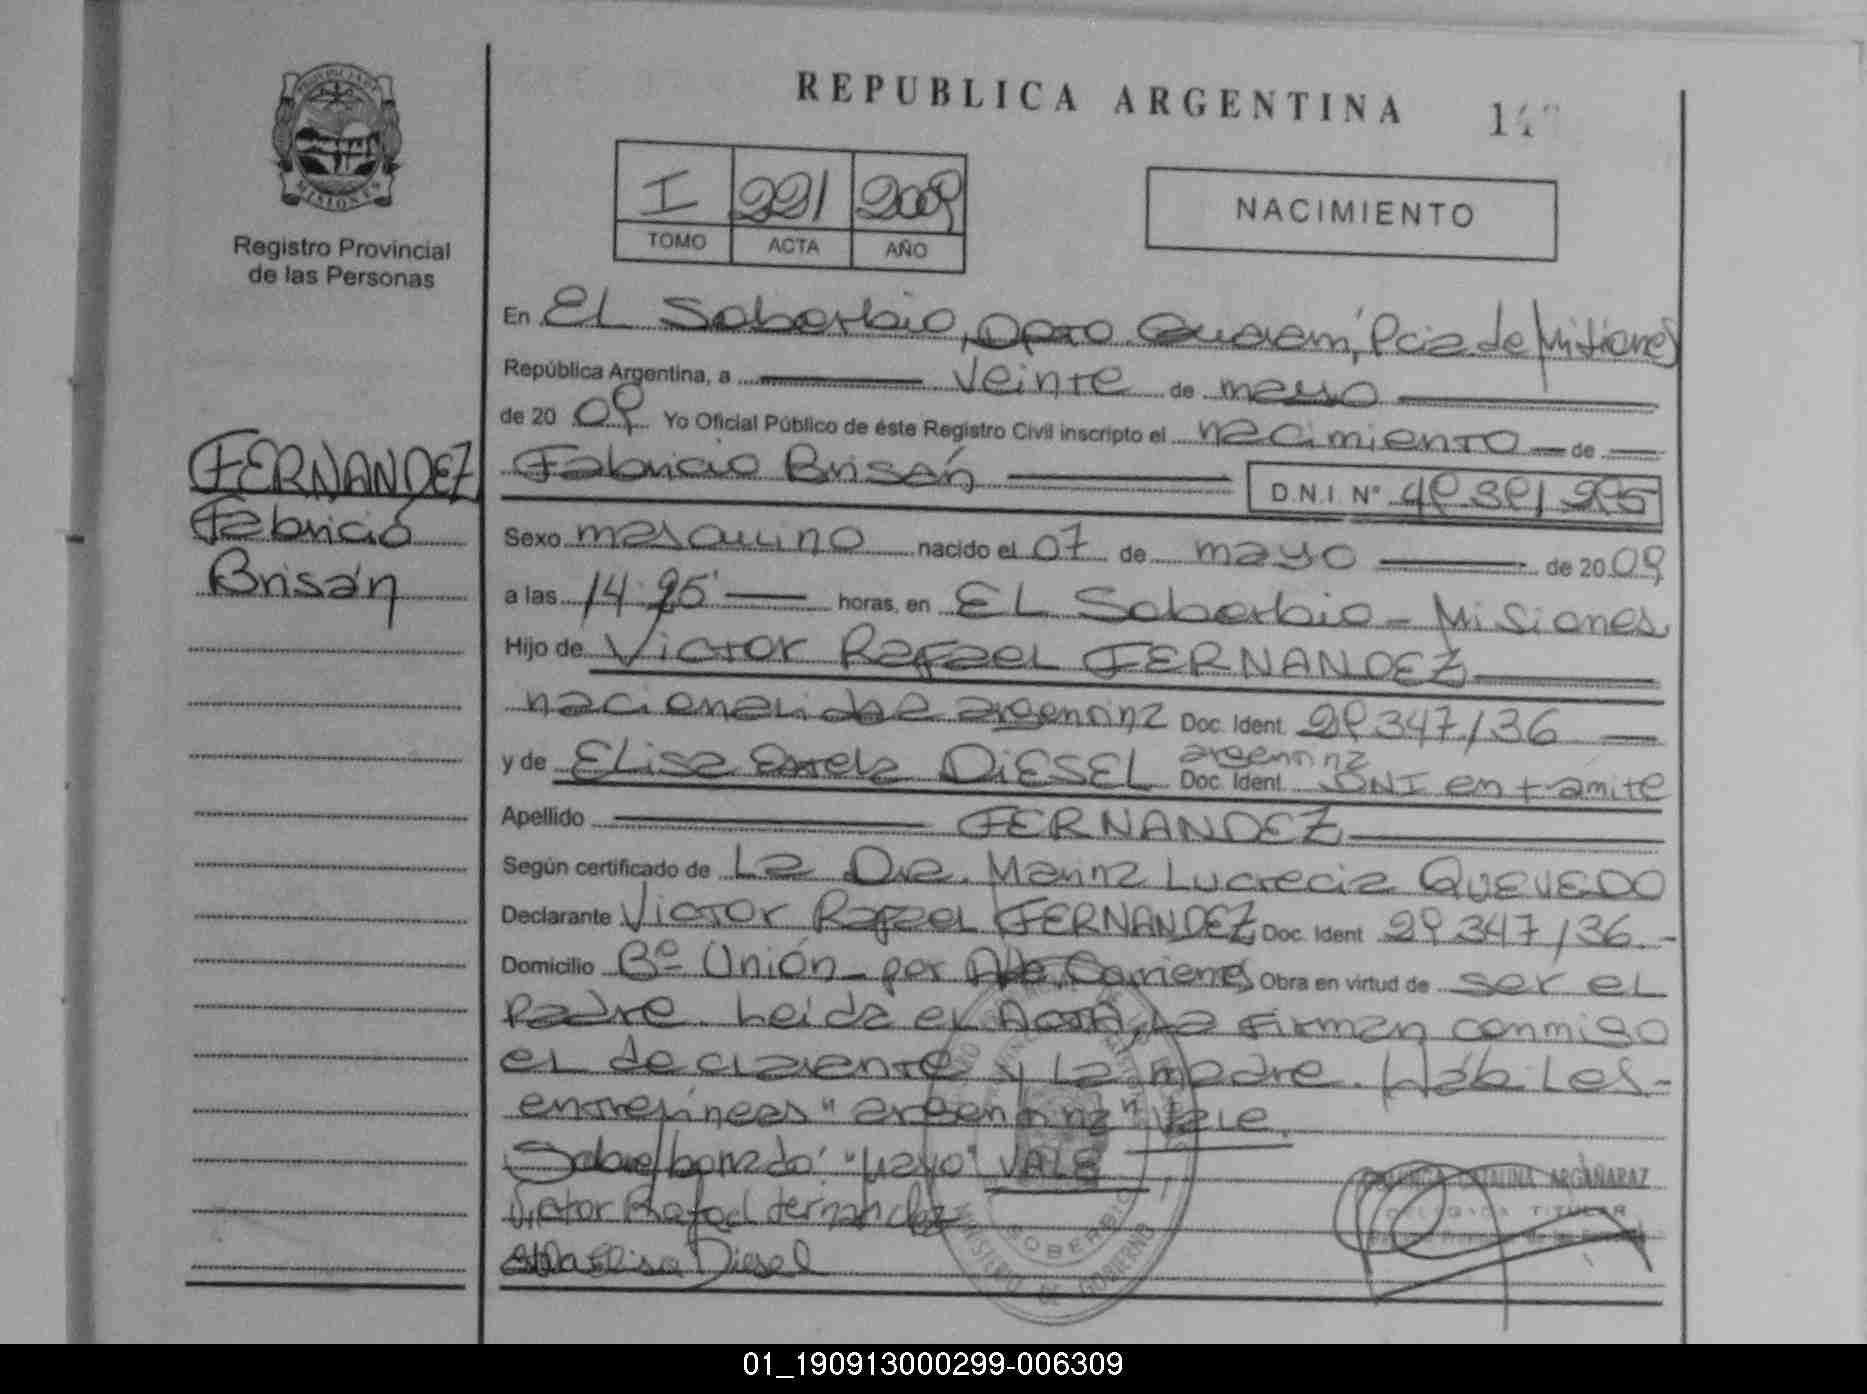 REPUBLICA ARGENTINA
PROVINCIA DE
MISIONES
Registro Provincial
de las Personas
I 221 2009
TOMO ACTA AÑO
NACIMIENTO
FERNANDEZ
Fabricio
Brisán
En El Soberbio, Dpto. Guaraní, Pcia de Misiones
República Argentina, a veinte de mayo
de 2009 Yo Oficial Público de éste Registro Civil inscripto el nacimiento de
Fabricio Brisán D.N.I. Nº
Sexo masculino nacido el 07 de mayo de 2009
a las 14:25' horas, en El Soberbio - Misiones
Hijo de Victor Rafael FERNANDEZ
nacionalidad argentina Doc. Ident. 29347136
y de Elisa DIESEL argentina Doc. Ident. DNI en trámite
Apellido FERNANDEZ
Según certificado de La Dra. Marina Lucrecia QUEVEDO
Declarante Victor Rafael FERNANDEZ Doc. Ident 29347136.-
Domicilio Bº Unión - por Obra en virtud de ser el
padre. Leida el Acta, la firman conmigo
el declarante y la madre.
entrelíneas "argentina" Vale.
Sobre/borrado: "mayo" VALE
Victor Rafael Fernandez
Elisa Diesel
SOBERBIO
MINISTERIO DE GOBIERNO
CATALINA ARGAÑARAZ
DELEGADA TITULAR
01_190913000299-006309